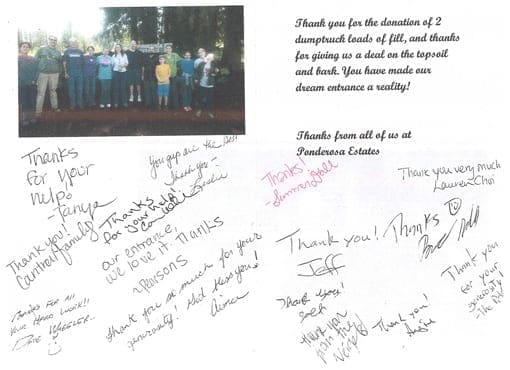 Thank you for the donation of 2
dumptruck loads of fill, and thanks
for giving us a deal on the topsoil
and bark. You have made our
dream entrance a reality!
Thanks from all of us at
Ponderosa Estates
Thanks
for your
help!
-Tanya
You guys are the best
Thank you -
Leslie
Thanks!
-Summer
Thank you very much
Lauren Choi
Thank you!
Cantrell family
Thanks
for your help!
our entrance,
we love it, Thanks
Parsons
Thank you!
Jeff
Thanks
Thank you
for your
generosity!
Thanks for all
your hard work!!
Dave Wheeler..
Thank you so much for your
generosity! God bless you!
Aimee
Thank you!
Thank you
Thank you!